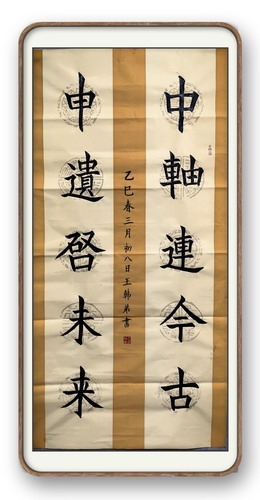 中軸連今古
申遺啓未来
乙巳春三月初八日王韩弟書